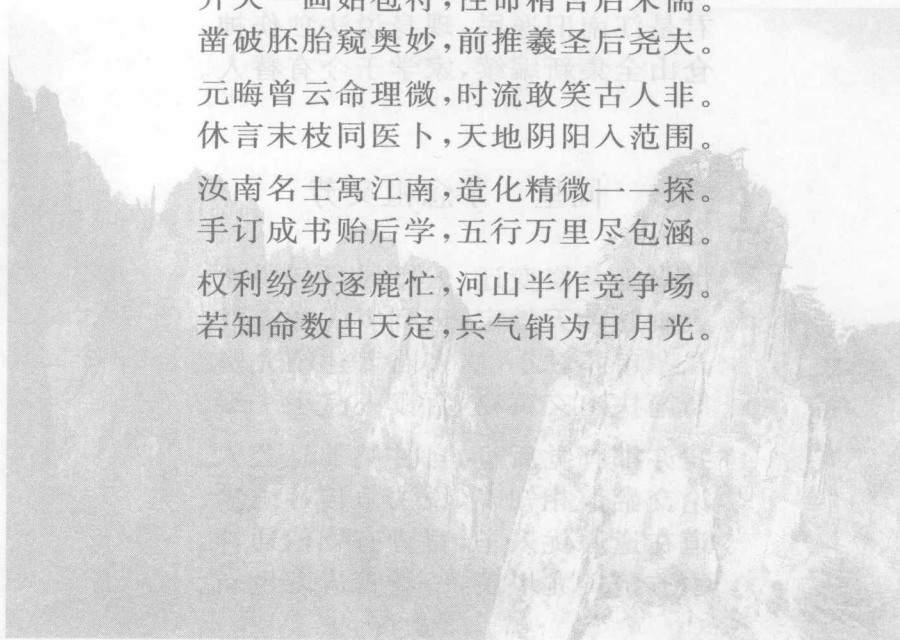 开天一画始包符,性命精言启宋儒。
凿破胚胎窥奥妙,前推羲圣后尧夫。
元晦曾云命理微,时流敢笑古人非。
休言末枝同医卜,天地阴阳入范围。
汝南名士寓江南,造化精微一一探。
手订成书贻后学,五行万里尽包涵。
权利纷纷逐鹿忙,河山半作竞争场。
若知命数由天定,兵气销为日月光。